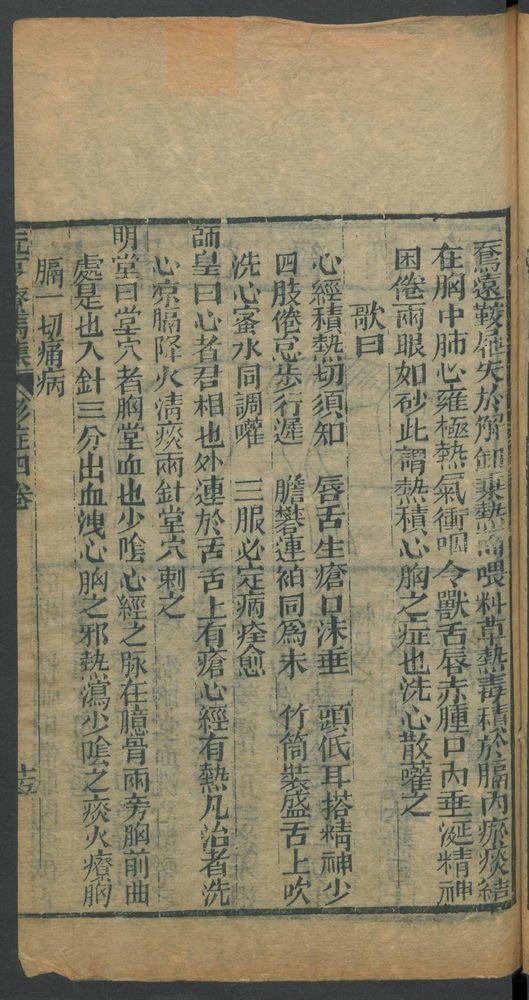 騫遠鞍屜失於解卸乗熱而喂料草熱毒積於膈内瘀痰結
在胸中肺心雍極熱氣衝咽令獸舌唇赤腫口内垂涎精神
困倦兩眼如砂此謂熱積心胸之症也洗心散嚾之
歌曰
心經積熱切須知　唇舌生瘡口沫垂　頭低耳搭精神少
四肢倦怠步行遲　膽礬連柏同為末　竹筒裝盛舌上吹
洗心蜜水同調嚾　三服必定病痊愈
師皇曰心者君相也外連於舌舌上有瘡心經有熱凡治者洗
心凉膈降火清痰兩針堂穴刺之
明堂曰堂穴者胸堂血也少陰心經之脉在臆骨兩旁胸前曲
處是也入針三分出血洩心胸之邪熱瀉少陰之痰火療胸
膈一切痛病
元亨療馬集 四卷